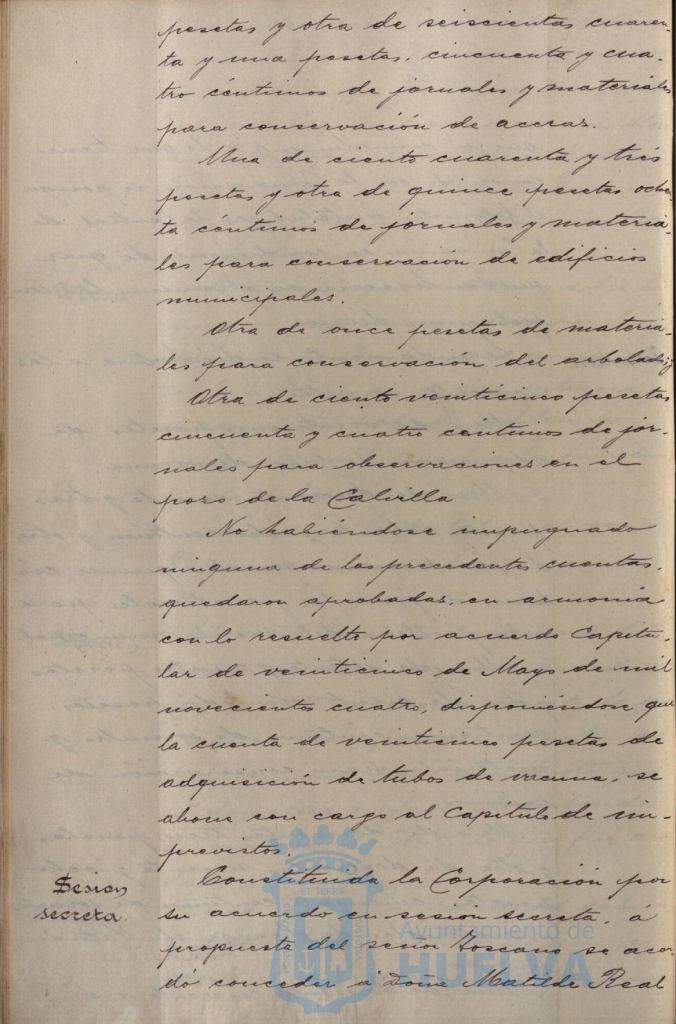 pesetas y otra de seiscientas cuaren-
ta y una pesetas, cincuenta y cua-
tro céntimos de jornales y materiales
para conservación de aceras.
Una de ciento cuarenta y tres
pesetas y otra de quince pesetas ochen-
ta céntimos de jornales y materia-
les para conservación de edificios
municipales.
Otra de once pesetas de materia-
les para conservación del arbolado; y
Otra de ciento veinticinco pesetas
cincuenta y cuatro céntimos de jor-
nales para observaciones en el
pozo de la Calvilla
No habiéndose impugnado
ninguna de las precedentes cuentas,
quedaron aprobadas, en armonía
con lo resuelto por acuerdo Capitu-
lar de veinticinco de Mayo de mil
novecientos cuatro, disponiéndose que
la cuenta de veinticinco pesetas de
adquisición de tubos de vacuna, se
abone con cargo al Capítulo de im-
previstos.
Sesion
secreta.
Constituida la Corporación por
su acuerdo en sesion secreta, á
propuesta del señor Toscano se acor-
dó conceder á Doña Matilde Real
Ayuntamiento de
HUELVA